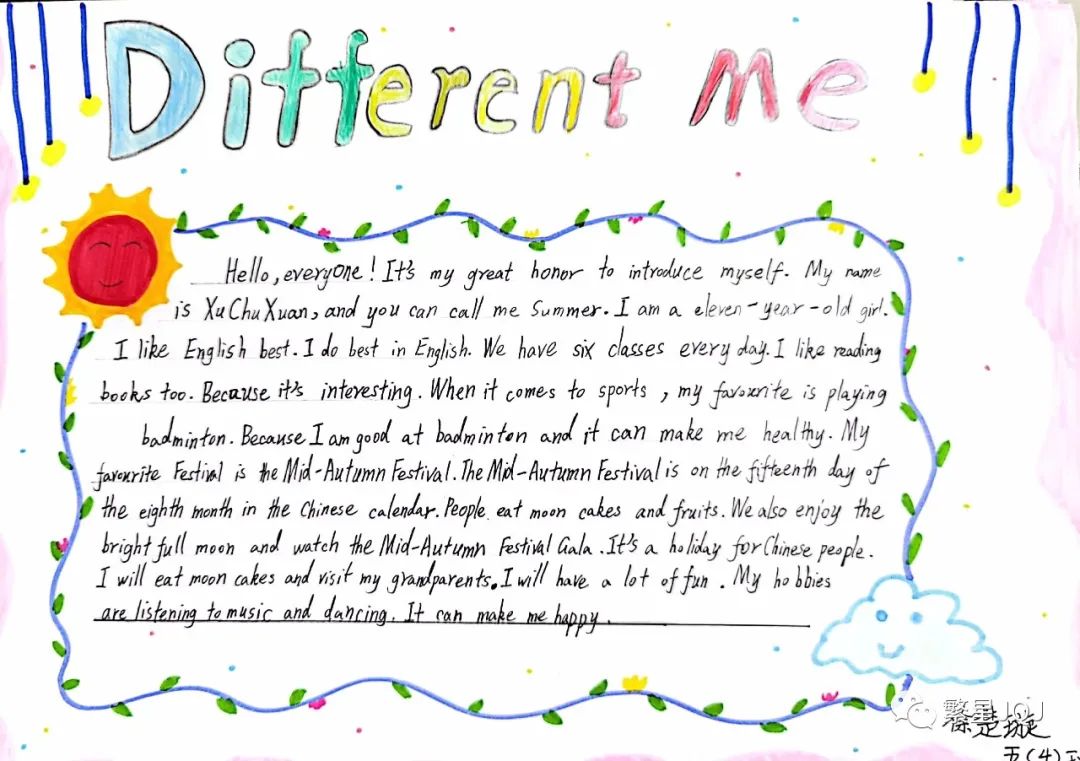 Different Me
Hello, everyone! It's my great honor to introduce myself. My name
is Xu Chu Xuan, and you can call me Summer. I am a eleven-year-old girl.
I like English best. I do best in English. We have six classes every day. I like reading
books too. Because it's interesting. When it comes to sports, my favourite is playing
badminton. Because I am good at badminton and it can make me healthy. My
favourite Festival is the Mid-Autumn Festival. The Mid-Autumn Festival is on the fifteenth day of
the eighth month in the Chinese calendar. People eat moon cakes and fruits. We also enjoy the
bright full moon and watch the Mid-Autumn Festival Gala. It's a holiday for Chinese people.
I will eat moon cakes and visit my grandparents. I will have a lot of fun. My hobbies
are listening to music and dancing. It can make me happy.
繁星JOJ
徐楚璇
五(4)